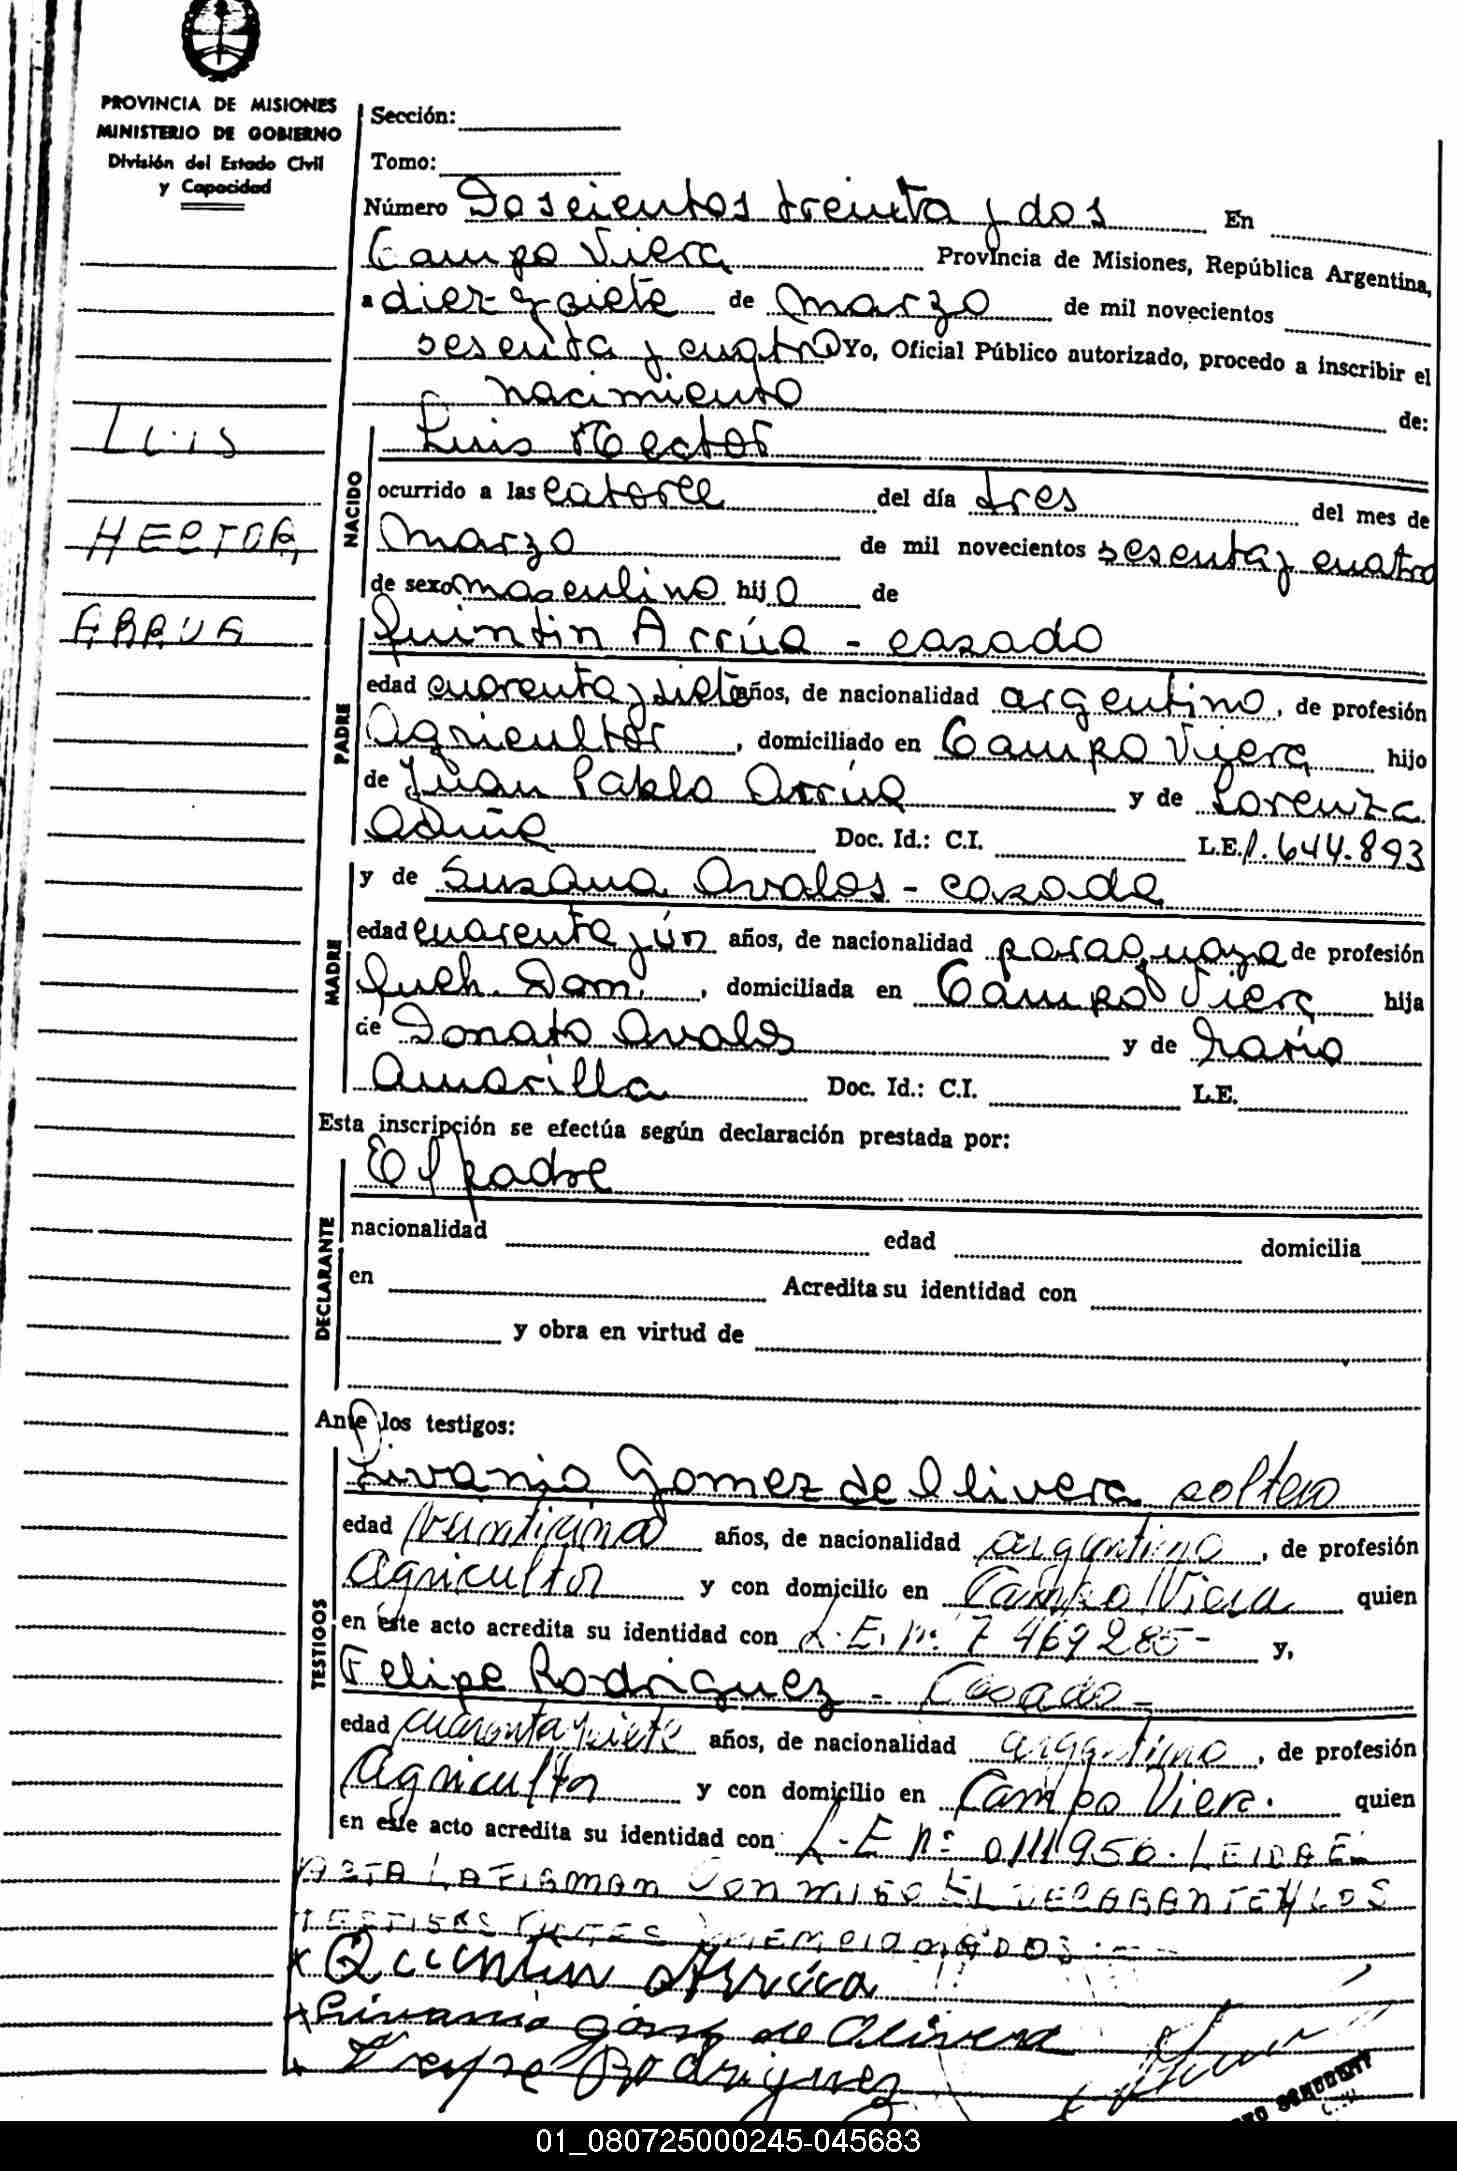 PROVINCIA DE MISIONES
MINISTERIO DE GOBIERNO
División del Estado Civil
y Capacidad
Sección:
Tomo:
Número Doscientos treinta y dos En
Campo Viera Provincia de Misiones, República Argentina,
a diez y siete de marzo de mil novecientos
sesenta y cuatro Yo, Oficial Público autorizado, procedo a inscribir el
nacimiento de:
LUIS
HECTOR
ARRUA
NACIDO
Luis Hector
ocurrido a las catorce del día tres del mes de
marzo de mil novecientos sesenta y cuatro
de sexo masculino hijo de
PADRE
Quintin Arrúa - casado
edad cuarenta y siete años, de nacionalidad argentino, de profesión
Agricultor, domiciliado en Campo Viera hijo
de Juan Pablo Arrúa y de Lorenza
Doc. Id.: C.I. L.E. 1.644.893
MADRE
y de Susana Avalos - casada
edad cuarenta y ún años, de nacionalidad paraguaya de profesión
Queh. Dom., domiciliada en Campo Viera hija
de Donato Avalos y de María
Amarilla Doc. Id.: C.I. L.E.
Esta inscripción se efectúa según declaración prestada por:
DECLARANTE
El padre
nacionalidad edad domicilia
en Acredita su identidad con
y obra en virtud de
Ante los testigos:
TESTIGOS
Livanio Gomez de Olivera soltero
edad años, de nacionalidad argentino, de profesión
Agricultor y con domicilio en Campo Viera quien
en este acto acredita su identidad con L.E. nº 7469285- y,
Felipe Rodriguez - Casado-
edad cuarenta y siete años, de nacionalidad argentino, de profesión
Agricultor y con domicilio en Campo Viera. quien
en este acto acredita su identidad con L-E nº 0111950. LEIDA EL
ACTA LA FIRMAN CONMIGO EL DECLARANTE Y LOS
TESTIGOS ANTES MENCIONADOS.--
x Quintin Arrúa
x Livanio Gómez de Olivera
x Felipe Rodriguez
01_080725000245-045683